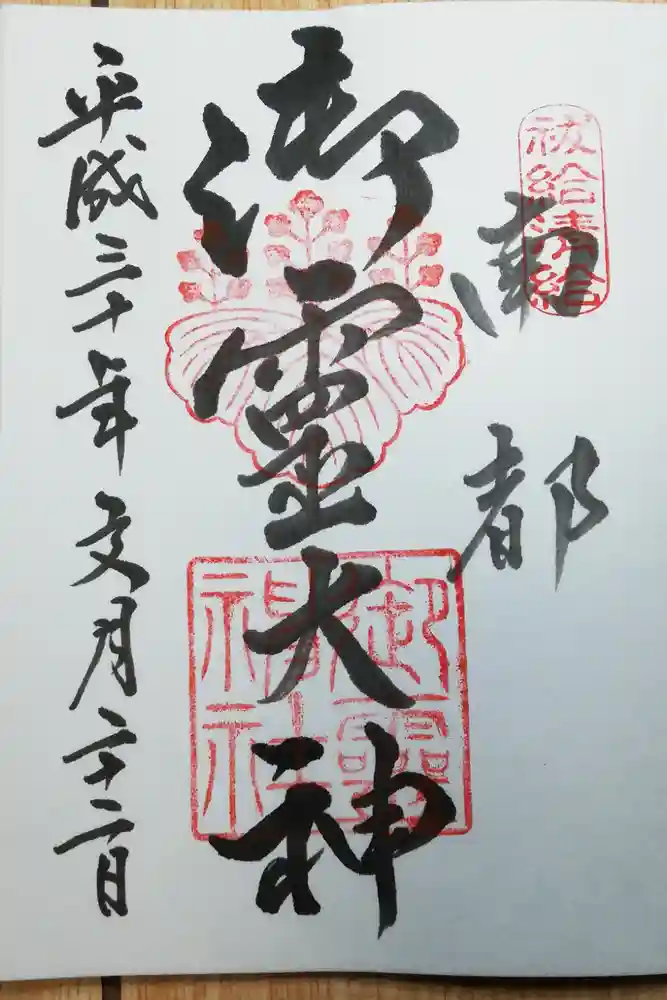 南都
祓給清給
御霊大神
御霊神社
平成三十年文月二十二日